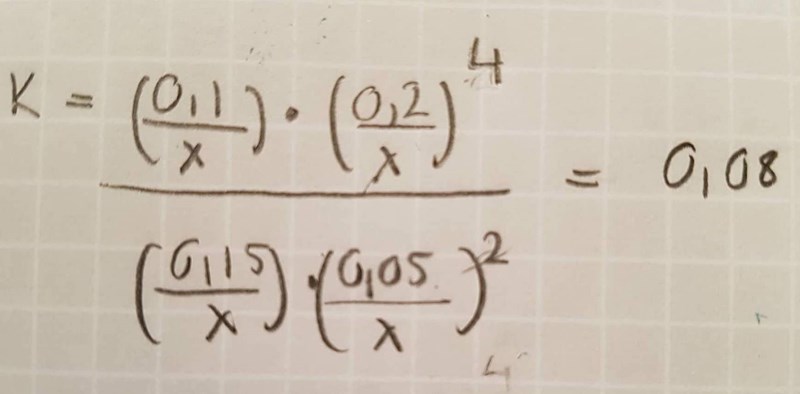 K = (0,1/x) · (0,2/x)^4 / (0,15/x) · (0,05/x)^2 = 0,08